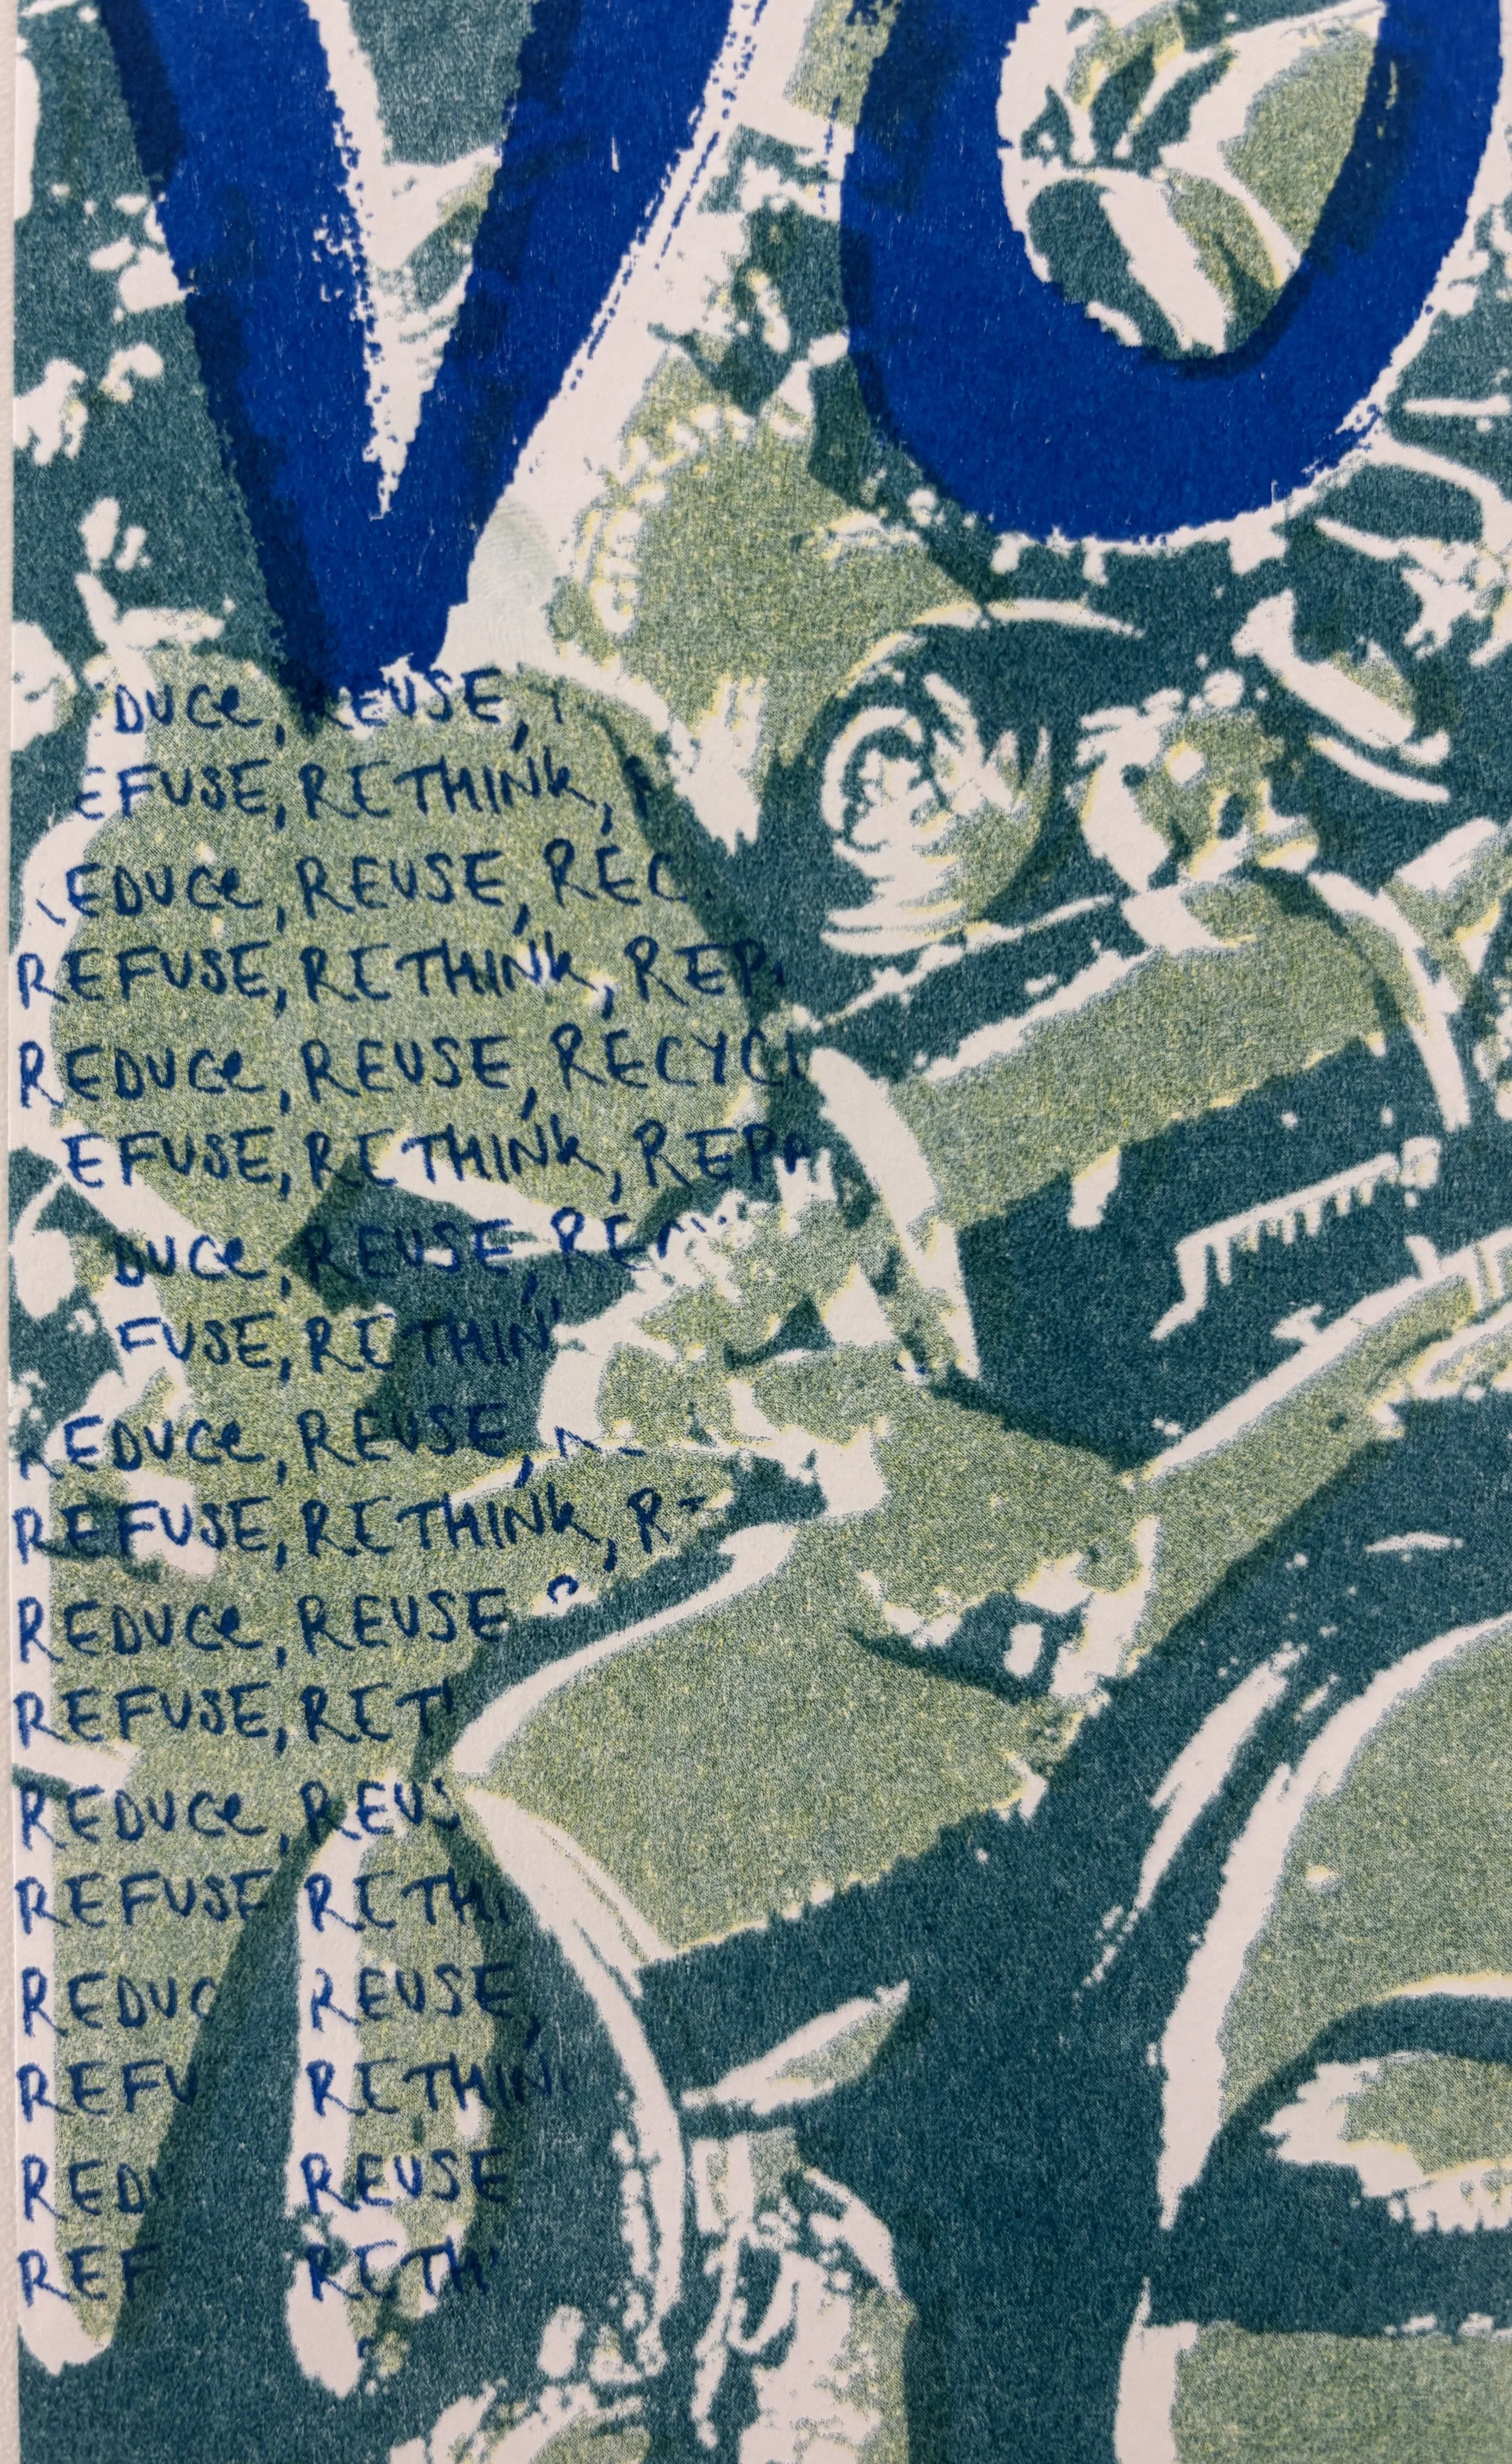 VO
DUCE, REUSE,
EFUSE, RETHINK,
EDUCE, REUSE, REC
REFUSE, RETHINK, REP
REDUCE, REUSE, RECYCL
EFUSE, RETHINK, REPA
DUCE, REUSE, REC
FUSE, RETHIN
REDUCE, REUSE,
REFUSE, RETHINK, R
REDUCE, REUSE
REFUSE, RET
REDUCE, REUS
REFUSE RETHI
REDUC REUSE,
REFU RETHIN
REDU REUSE
REF RETH